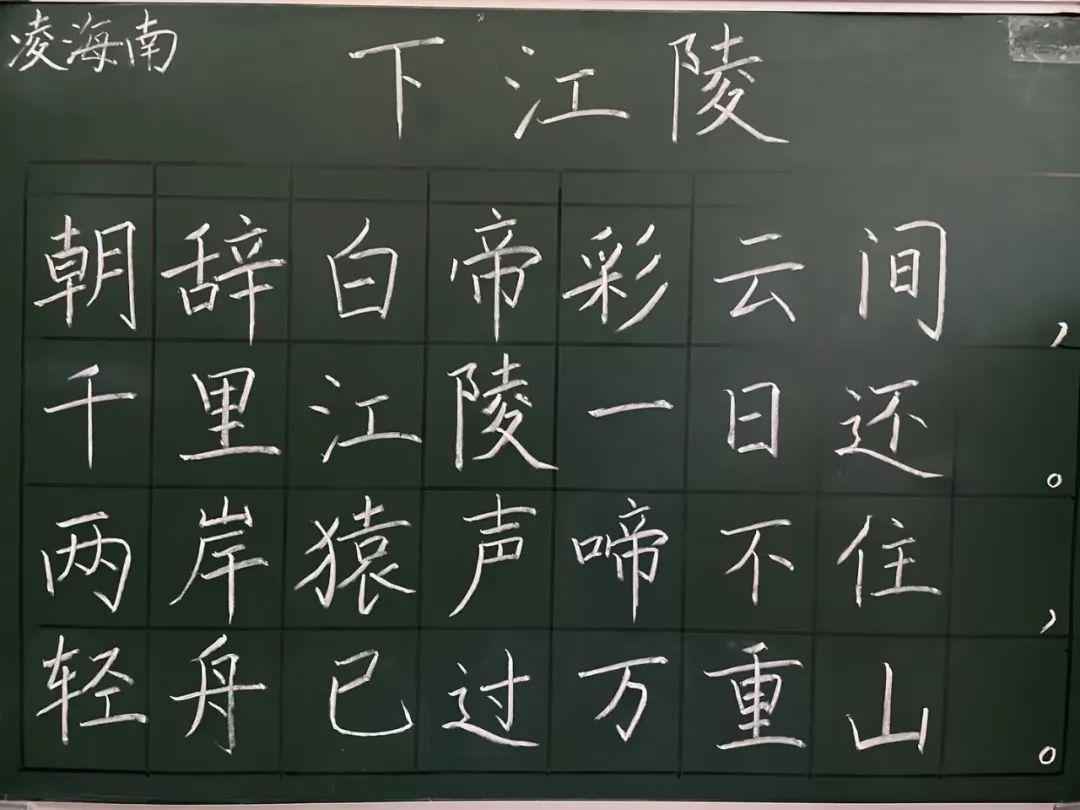 凌海南
下江陵
朝辞白帝彩云间，
千里江陵一日还。
两岸猿声啼不住，
轻舟已过万重山。